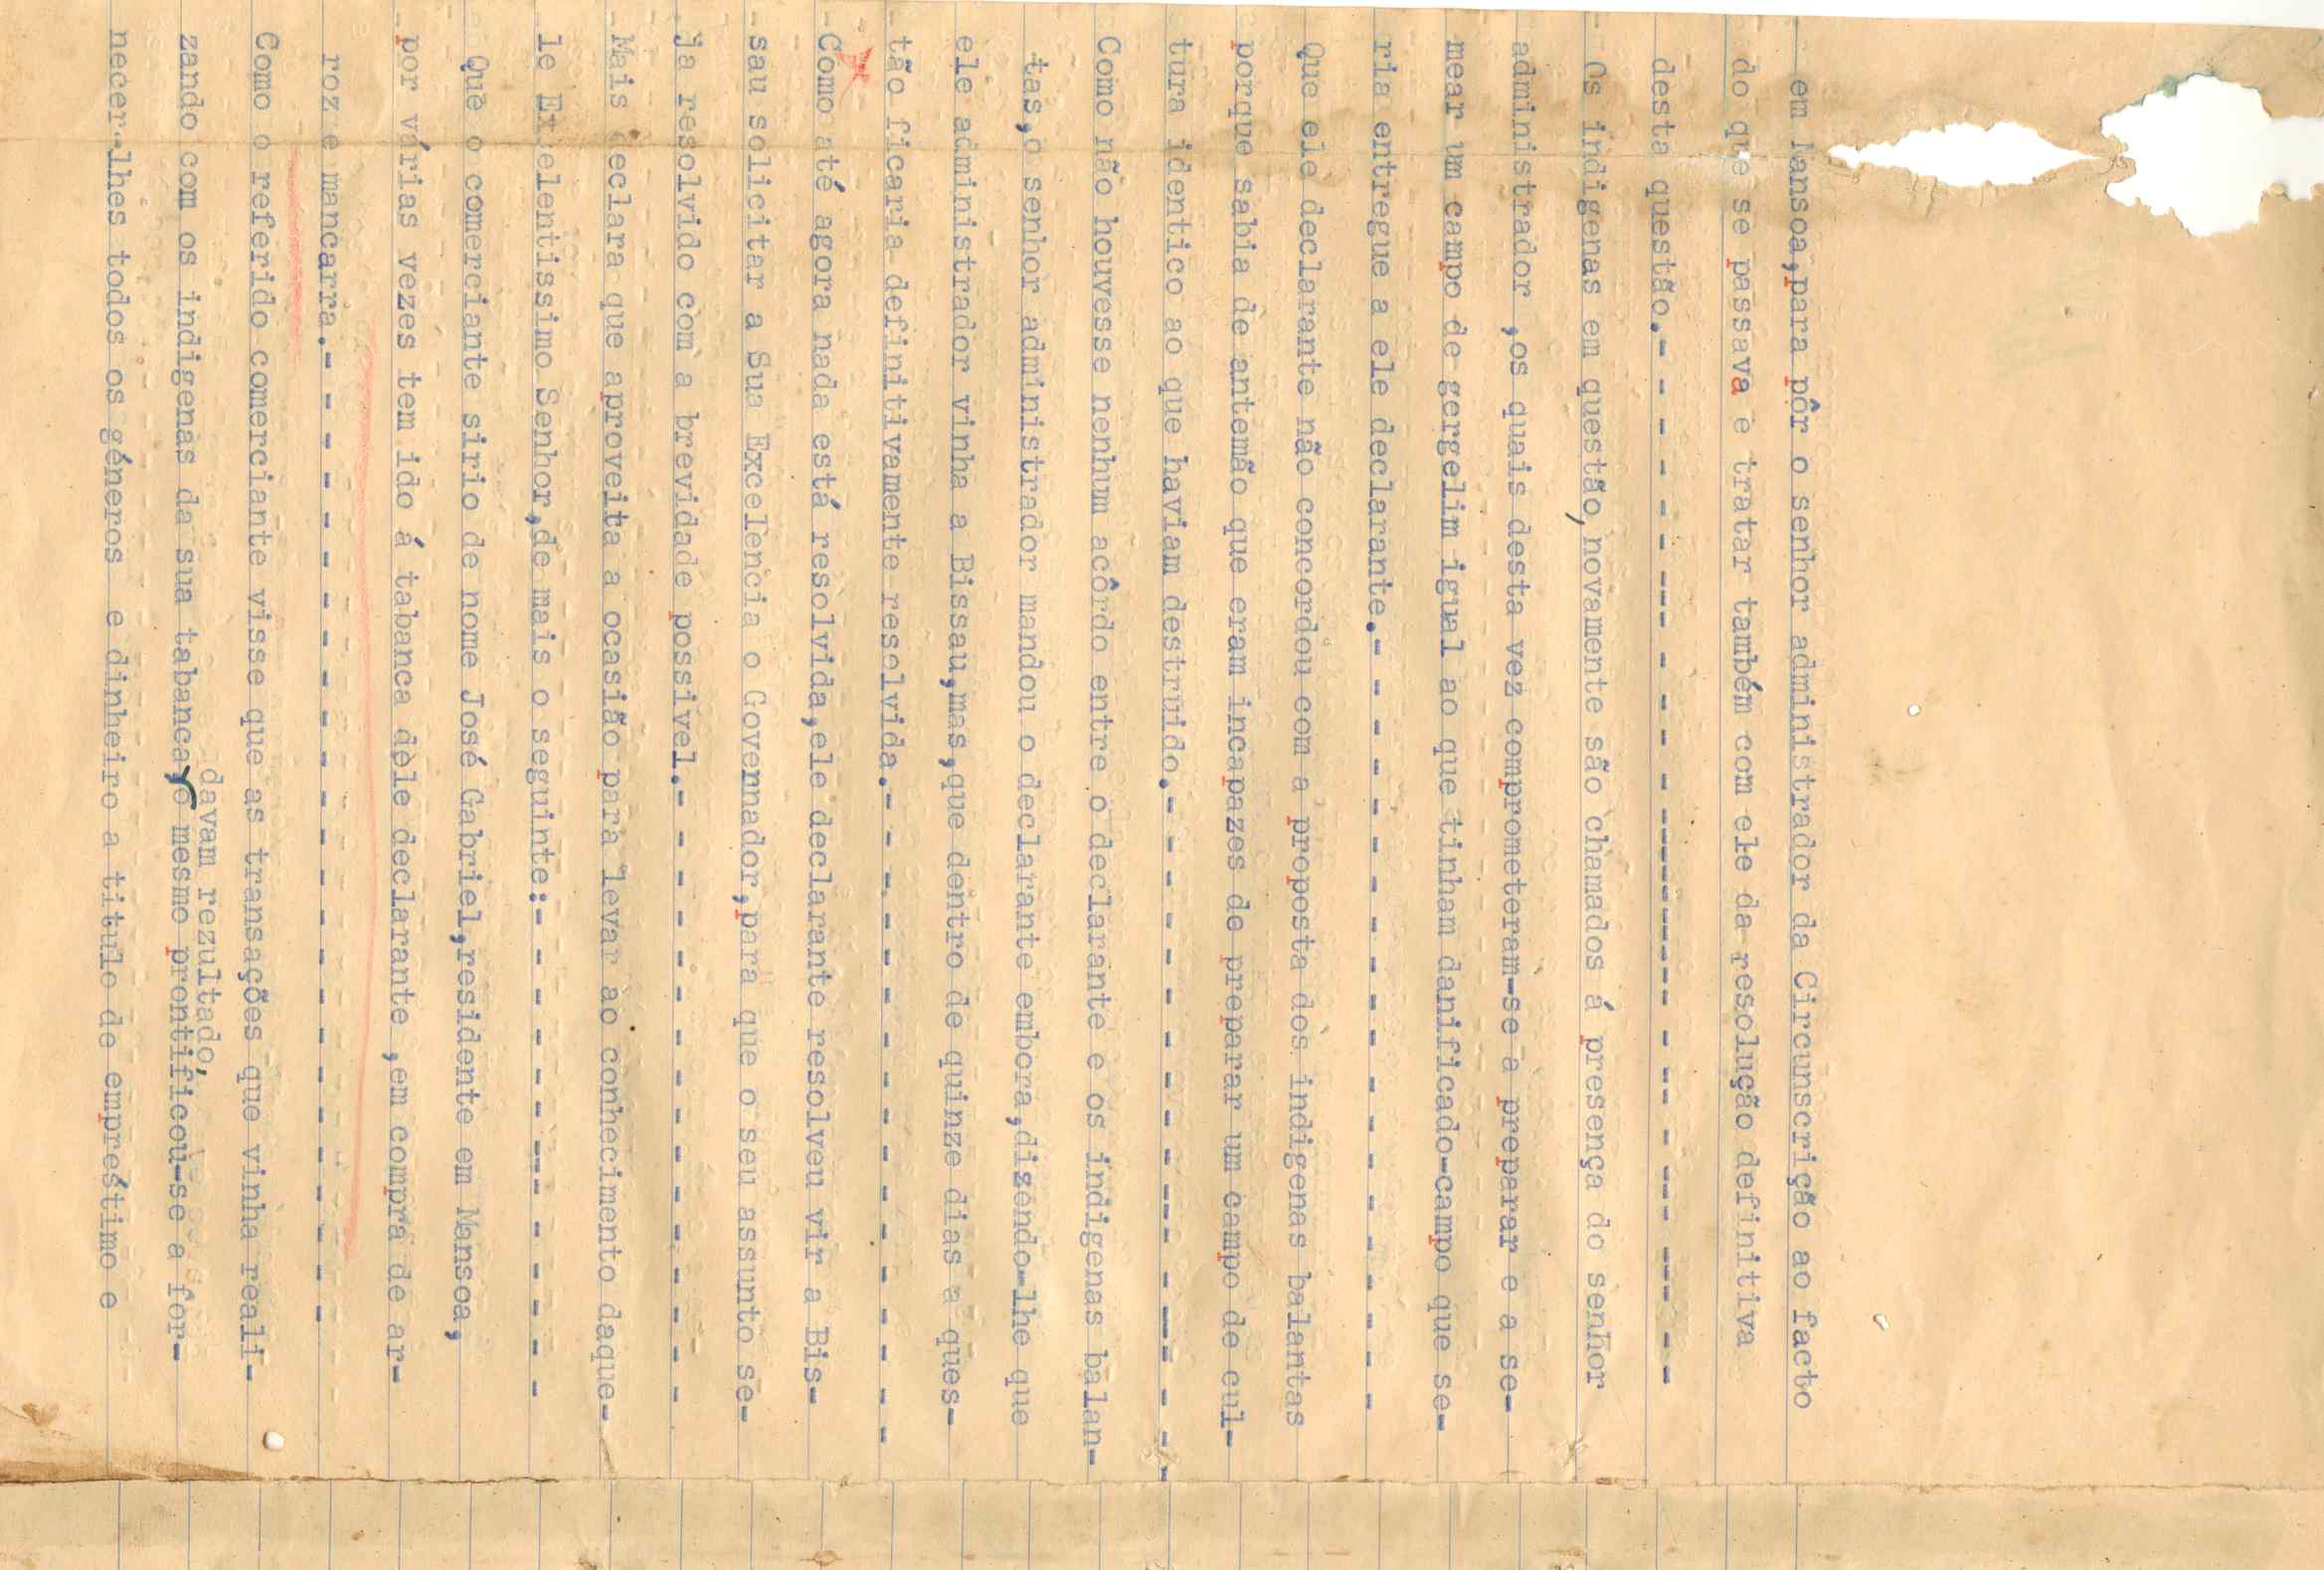 em Mansoa,para pôr o senhor administrador da Circunscrição ao facto
do que se passava e tratar também com ele da resolução definitiva
desta questão.- - - - - - --- - - - - ----------- - -- - --- --- - -
Os indigenas em questão,novamente são chamados á presença do senhor
administrador ,os quais desta vez comprometeram-se a preparar e a se-
mear um campo de gergelim igual ao que tinham danificado-campo que se-
ria entregue a ele declarante.- - - - - - - - - - - - - - - - - - -
Que ele declarante não concordou com a proposta dos indigenas balantas
porque sabia de antemão que eram incapazes de preparar um campo de cul-
tura identico ao que haviam destruido.- - - - - - - - - --- - --- - -
Como não houvesse nenhum acôrdo entre o declarante e os indigenas balan-
tas,o senhor administrador mandou o declarante embora,dizendo-lhe que
ele administrador vinha a Bissau,mas,que dentro de quinze dias a ques-
tão ficaria definitivamente resolvida.- - - - - - - - - - - - - - - -
-Como até agora nada está resolvida,ele declarante resolveu vir a Bis-
sau solicitar a Sua Excelencia o Governador,para que o seu assunto se-
ja resolvido com a brevidade possivel.- - - - - - - - - - - - - - - -
-Mais declara que aproveita a ocasião para levar ao conhecimento daque-
le Excelentissimo Senhor,de mais o seguinte:- - - - - - --- - - - - -
Que o comerciante sirio de nome José Gabriel,residente em Mansoa,
por várias vezes tem ido á tabanca dele declarante ,em compra de ar-
roz e mancarra.- - - - - - - - - - - - - - - - - - - - - - -
Como o referido comerciante visse que as transações que vinha reali-
davam rezultado,
zando com os indigenas da sua tabanca,o mesmo prontificou-se a for-
necer-lhes todos os géneros e dinheiro a titulo de empréstimo e